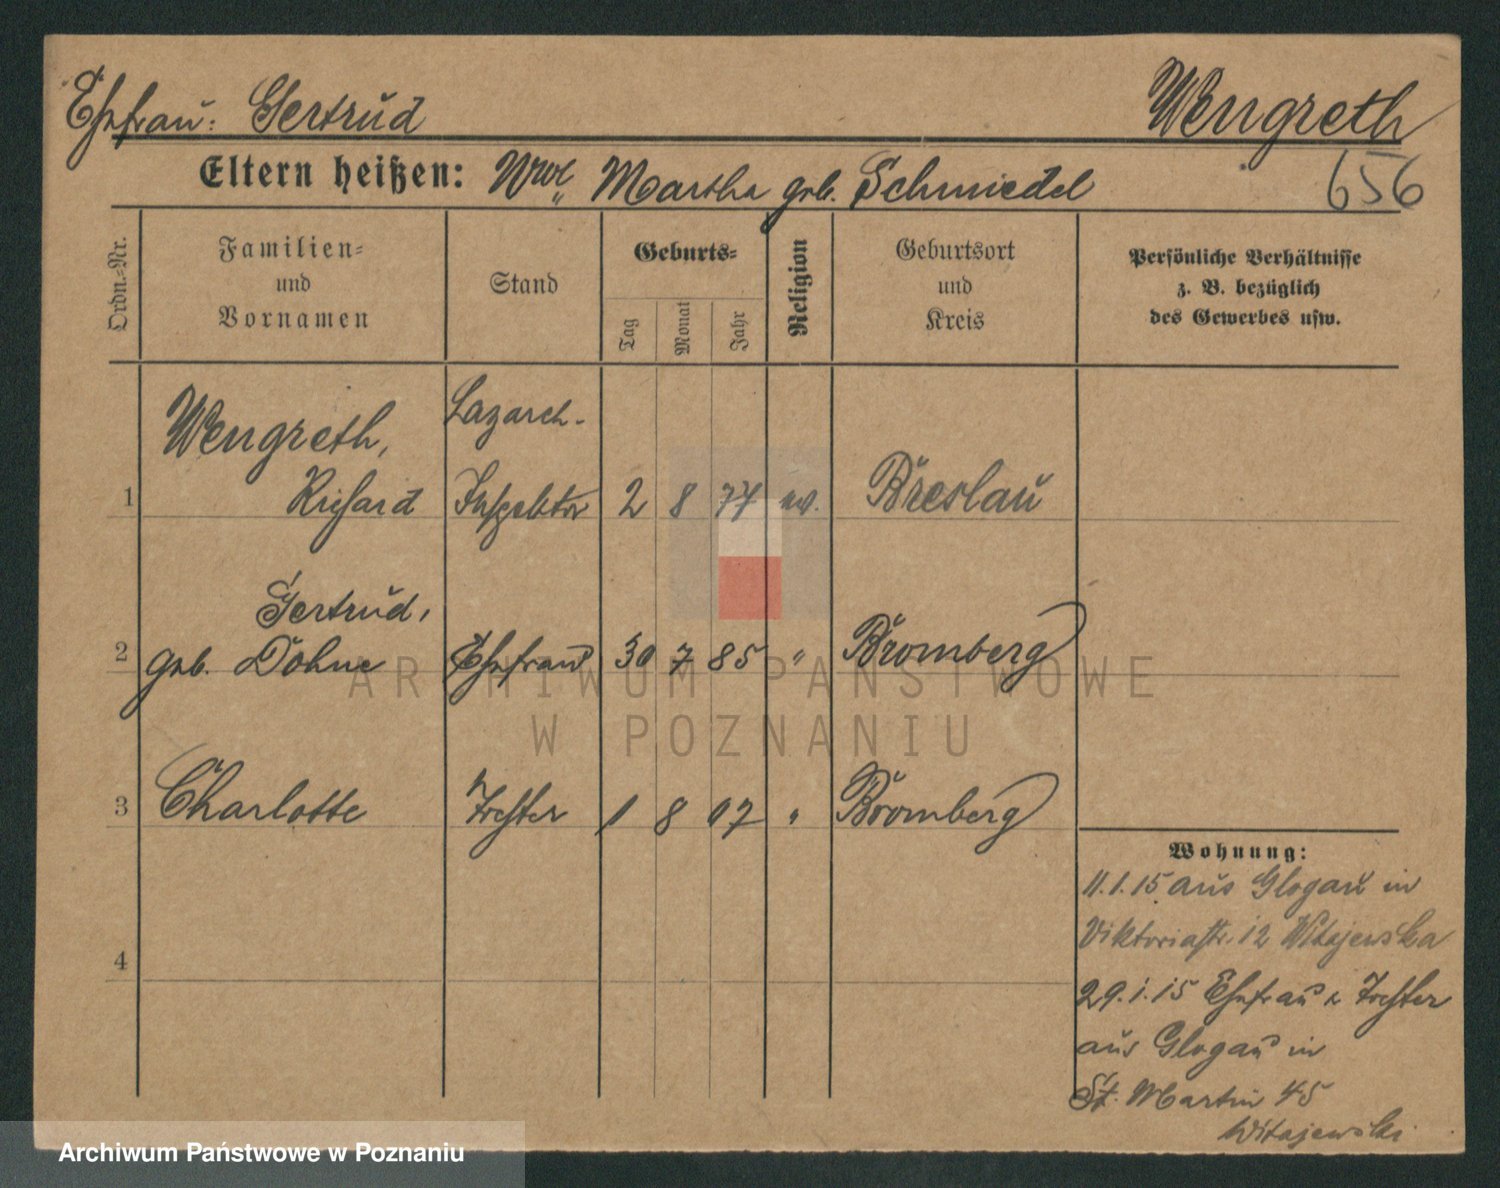 Ehefrau: Gertrud
Wengreth
656
Eltern heißen: Martha geb. Schmiedel
Ordn.-Nr.
Familien-
und
Vornamen
Stand
Geburts-
Tag
Monat
Jahr
Religion
Geburtsort
und
Kreis
Persönliche Verhältnisse
z. B. bezüglich
des Gewerbes usw.
1
Wengreth,
Richard
Lazareth-
Inspektor
2
8
77
ev.
Breslau
2
Gertrud,
geb. Döhne
Ehefrau
30
7
85
"
Bromberg
3
Charlotte
Tochter
1
8
07
"
Bromberg
4
Wohnung:
11.1.15 aus Glogau in
Viktoriastr. 12 Witajewska
29.1.15 Ehefrau u Tochter
aus Glogau in
St. Martin 45
Witajewski
ARCHIWUM PAŃSTWOWE
W POZNANIU
Archiwum Państwowe w Poznaniu